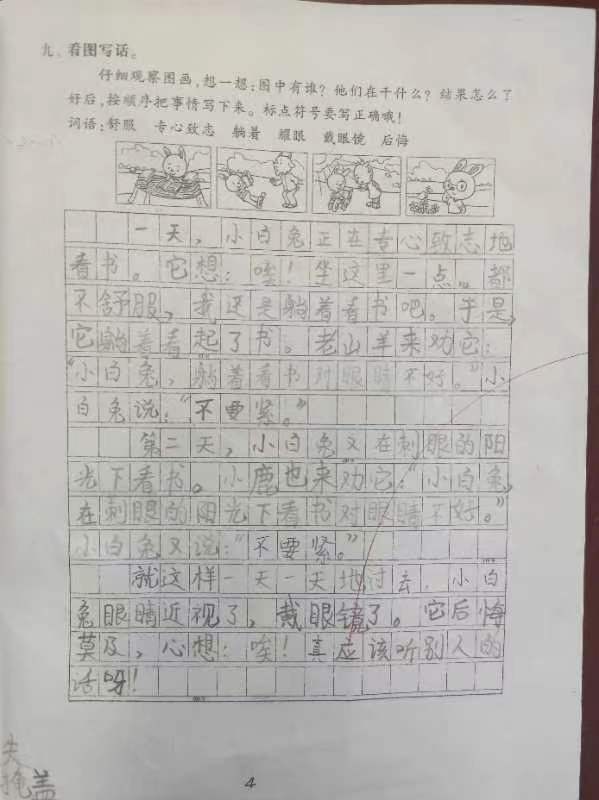 九、看图写话。
仔细观察图画，想一想：图中有谁？他们在干什么？结果怎么了
好后，按顺序把事情写下来。标点符号要写正确哦！
词语：舒服 专心致志 躺着 耀眼 戴眼镜 后悔
一天，小白兔正在专心致志地
看书。它想：唉！坐这里一点。都
不舒服，我还是躺着看书吧。于是，
它躺着看起了书。老山羊来劝它：
“小白兔，躺着看书对眼睛不好。”小
白兔说：“不要紧。”
第二天，小白兔又在刺眼的阳
光下看书。小鹿也来劝它：“小白兔，
在刺眼的阳光下看书对眼睛不好。”
小白兔又说：“不要紧。”
就这样一天一天地过去，小白
兔眼睛近视了，戴眼镜了。它后悔
莫及，心想：唉！真应该听别人的
话呀！
失
掩盖
4